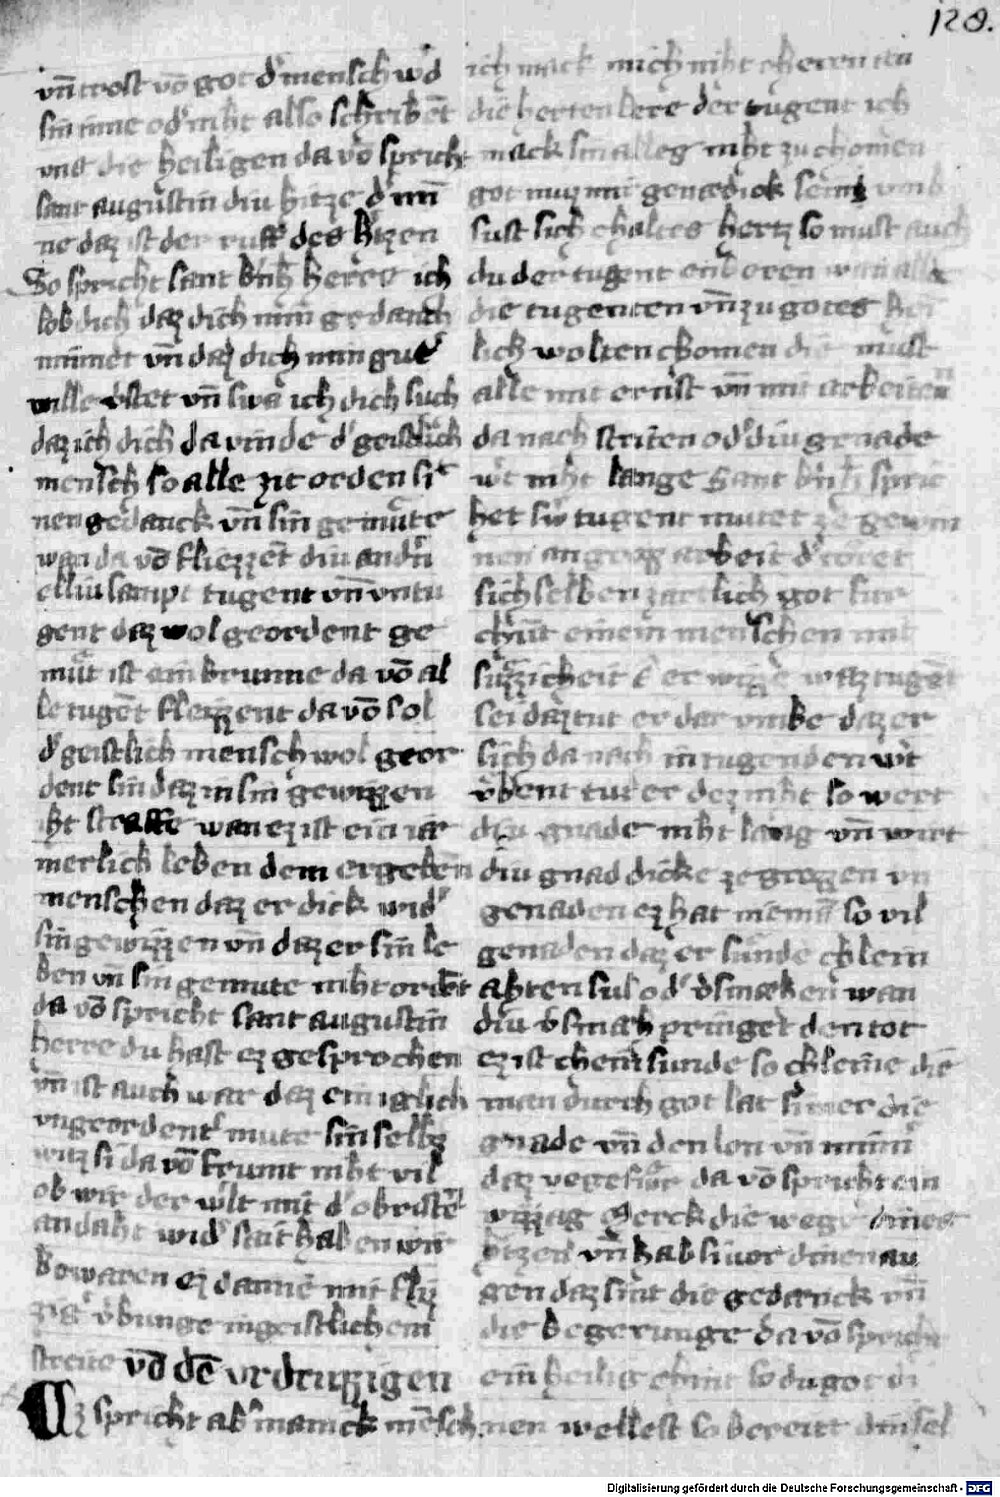 128.
vn̄ trost vō got d' mensch w'd
sin inne od' niht also schribēt
vns die heiligen da vō spricht
sant augustin diu hitze d' min
ne daz ist der ruff des h'tzen
So spricht sant b'nh' herre ich
lob dich daz dich min gedanch
minnet vn̄ daz dich min gut
wille v'stet vn̄ swa ich dich such
daz ich dich da vinde d' geistlich
mensch so alle zit orden si
nen gedanck vn̄ sin gemute
wan da vō fliezzēt diu andn
elliu sampt tugent vn̄ vntu
gent daz wol geordent ge
mut ist ein brunne da vō al
le tugēt fliezzent da vō sol
d' geistlich mensch wol geor
dent sin daz in sin gewizzen
iht straffe wan ez ist ein iæ
merlich leben dem ergeben
menschen daz er dick wid'
sin gewizzen vn̄ daz er sin le
ben vn̄ sin gemute niht ordēt
da vō spricht sant augustin
herre du hast ez gesprochen
vn̄ ist auch war daz ein iglich
vngeordent' mute sin selbz
witz si da vō frumt niht vil
ob wir der w'lt mit d' obristē
andaht wid' sait haben wir
bewaren ez danne mit fliz
zig' v'bunge in geistlichem
streite vō dē vrdruzzigen
Ez spricht ab' manick mēsch
ich mack mich niht cheren an
die herten lere der tugent ich
mack sin alles niht zu chomen
got muz mir genædick sein vmb
sust sich chaltes hertz so must auch
du der tugent enberen wan alle
die tugenten vn̄ zu gotes hei
lich wolten chomen die must
alle mit ernst vn̄ mit arbeiten
da nach striten od' diu genade
w't niht lange Sant b'nh' spric
het sw' tugent mutet ze gewin
nen an grozz arbeit d' toret
sich selben zartlich got
chumt einem menschen mit
suzzicheit er wizze waz tugēt
sei daz tut er dar vmbe daz er
sich da nach in tugenden w't
v'bent tut er dez niht so wert
diu gnade niht lang vn̄ wirt
diu gnad dicke ze grozzen vn
genaden ez hat niemā so vil
genaden daz er sunde chlein
ahten sul od' v'smæhen wan
diu v'smæh pringet den tot
ez ist chein sunde so chleine die
man durch got lat si mer die
gnade vn̄ den lon vn̄ minn'
daz vegefiur da vō spricht ein
wizzag Merck die wege dines
h'tzen vn̄ hab si vor dinen au
gen daz sint die gedanck vn̄
die begerunge da vō spricht
ein heilig chint so du got di
nen wellest so bereitt din sel
Digitalisierung gefördert durch die Deutsche Forschungsgemeinschaft - DFG